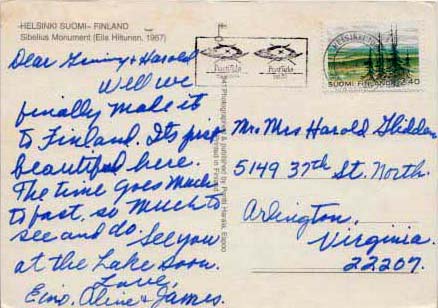 HELSINKI SUOMI - FINLAND
Sibelius Monument (Eila Hiltunen, 1967)
Dear Ginny & Harold
Well we
finally made it
to Finland. Its just
beautiful here.
The time goes much
to fast, so much to
see and do. See you
at the Lake soon.
Love,
Eino, Aline & James.
Photographed & published by Pentti Harala, Espoo
Printed in Finland
Postfola
Postfola
SUOMI FINLAND 2.40
Mr. Mrs Harold
5149 37th St. North.
Arlington,
Virginia.
22207.